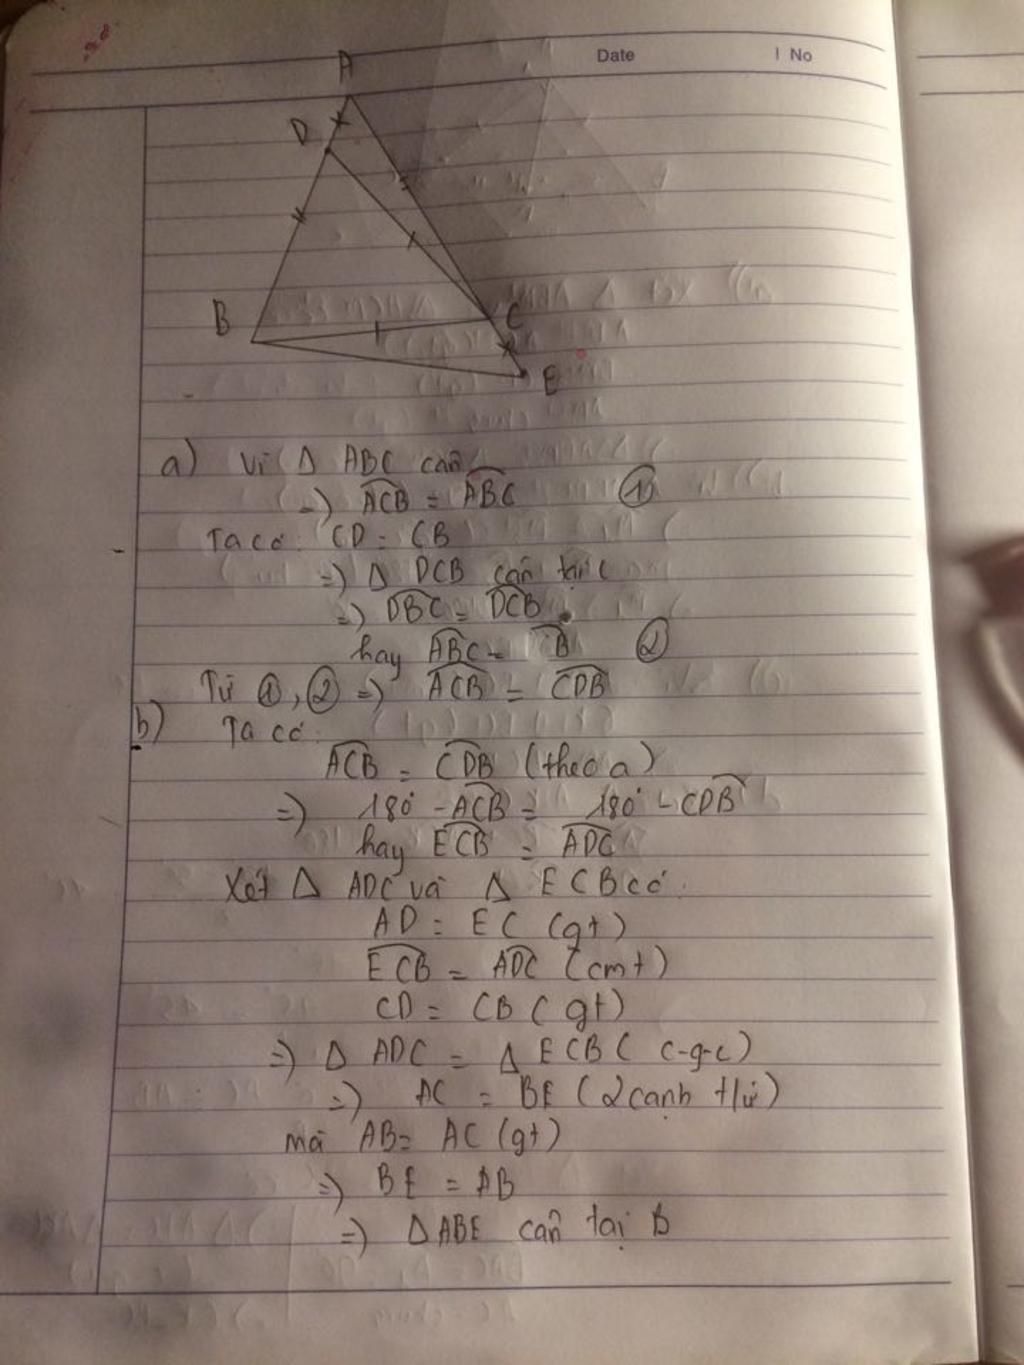 Date I No
A
D
B
C
E
a) Vì Δ ABC cân
=) ACB = ABC ①
Ta có: CD = CB
=) Δ DCB cân tại C
=) DBC = DCB
hay ABC = B ②
Từ ①, ② =) ACB = CDB
b) Ta có:
ACB = CDB (theo a)
=) 180° - ACB = 180° - CDB
hay ECB = ADC
Xét Δ ADC và Δ ECB có:
AD = EC (gt)
ECB = ADC (cmt)
CD = CB (gt)
=) Δ ADC = Δ ECB ( c-g-c)
=) AC = BE (2 cạnh t/ứ)
mà AB = AC (gt)
=) BE = AB
=) Δ ABE cân tại B